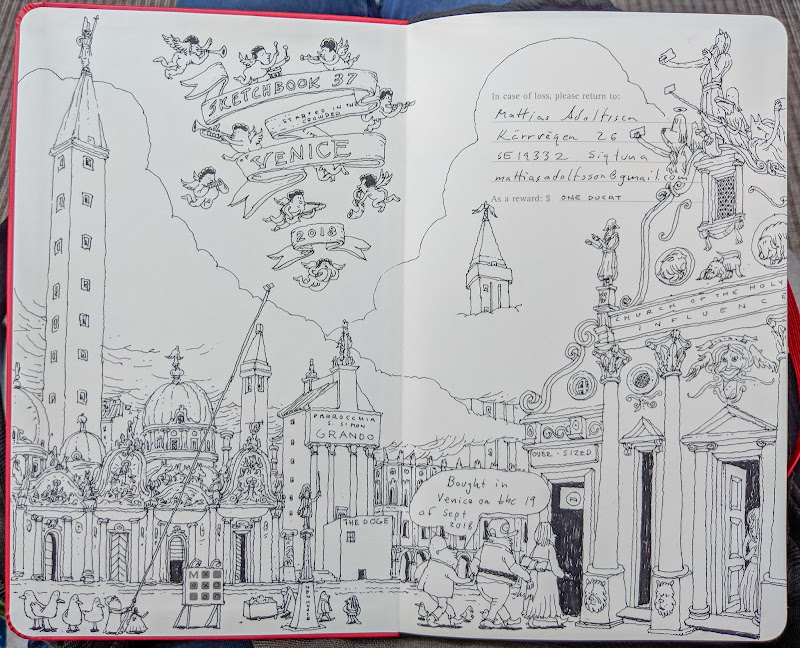 SKETCHBOOK 37
STARTED IN THE
CROWDED
VENICE
2018
PARROCCHIA
S. SIMON
GRANDO
THE DOGE
M
In case of loss, please return to:
Mattias Adolfsson
Kärrvägen 26
SE 19332 Sigtuna
mattiasadolfsson@gmail.com
As a reward: $ ONE DUCAT
CHURCH OF THE HOLY
INFLUENCE
OVER-SIZED
Bought in
Venice on the 19
of Sept
2018